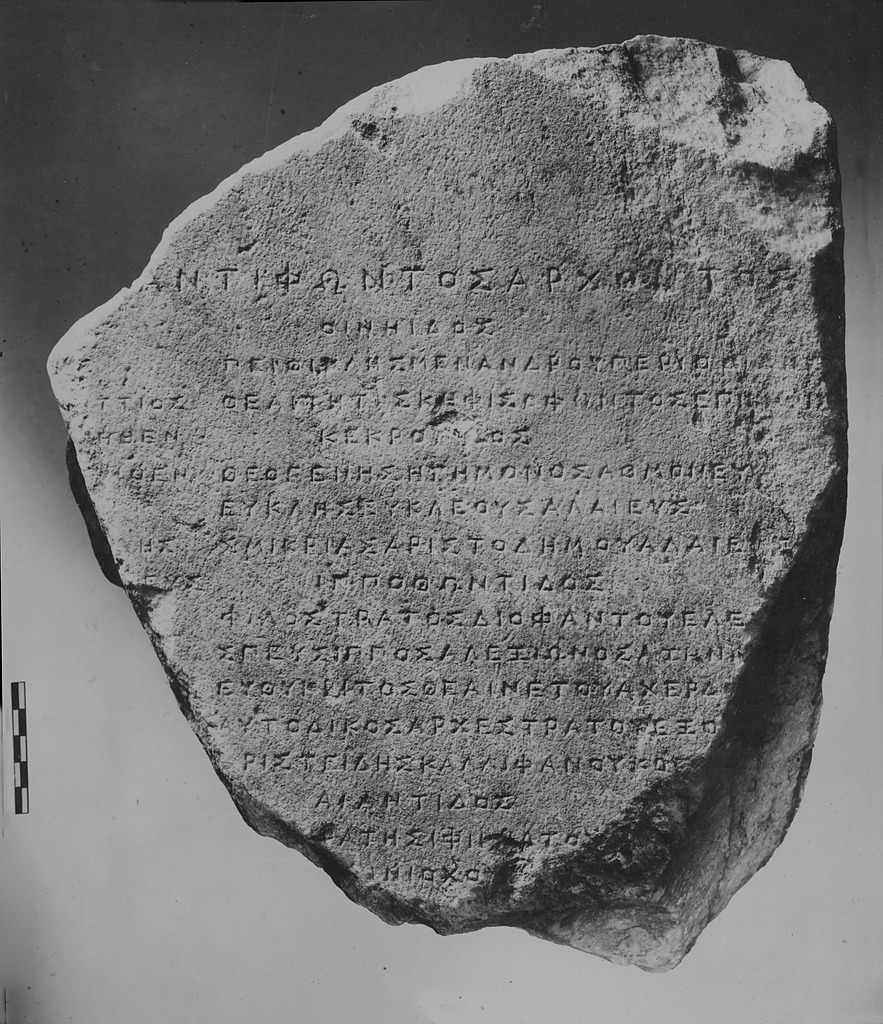 ΑΝΤΙΦΩΝΤΟΣΑΡΧΟΝΤΟΣ
ΟΙΝΗΙΔΟΣ
ΠΕΡΙΚΛΗΣΜΕΝΑΝΔΡΟΥΠΕΡΙΘΟΙΔΗ
ΤΤΙΟΣ ΘΕΑΙΤΗΤΟΣΚΗΦΙΣΟΦΩΝΤΟΣΕΠΙΚΗΦΙ
ΗΘΕΝ ΚΕΚΡΟΠΙΔΟΣ
ΗΘΕΝ ΘΕΟΓΕΝΗΣΗΓΗΜΟΝΟΣΑΘΜΟΝΕΥ
ΕΥΚΛΗΣΕΥΚΛΕΟΥΣΑΛΑΙΕΥΣ
ΗΣ ΣΜΙΚΡΙΑΣΑΡΙΣΤΟΔΗΜΟΥΑΛΑΙΕΥΣ
ΕΥΣ ΙΠΠΟΘΩΝΤΙΔΟΣ
ΦΙΛΟΣΤΡΑΤΟΣΔΙΟΦΑΝΤΟΥΕΛΕ
ΣΠΕΥΣΙΠΠΟΣΑΛΕΞΙΩΝΟΣΑΖΗΝΙ
ΕΥΘΥΚΡΙΤΟΣΘΕΑΙΝΕΤΟΥΑΧΕΡΔ
ΑΥΤΟΔΙΚΟΣΑΡΧΕΣΤΡΑΤΟΥΕΞΟ
ΡΙΣΤΕΙΔΗΣΚΑΛΛΙΦΑΝΟΥΚΟΣ
ΑΙΑΝΤΙΔΟΣ
ΑΤΗΣΙΦΙΚΡΑΤΟΥΣ
ΗΝΙΟΧΟΥ